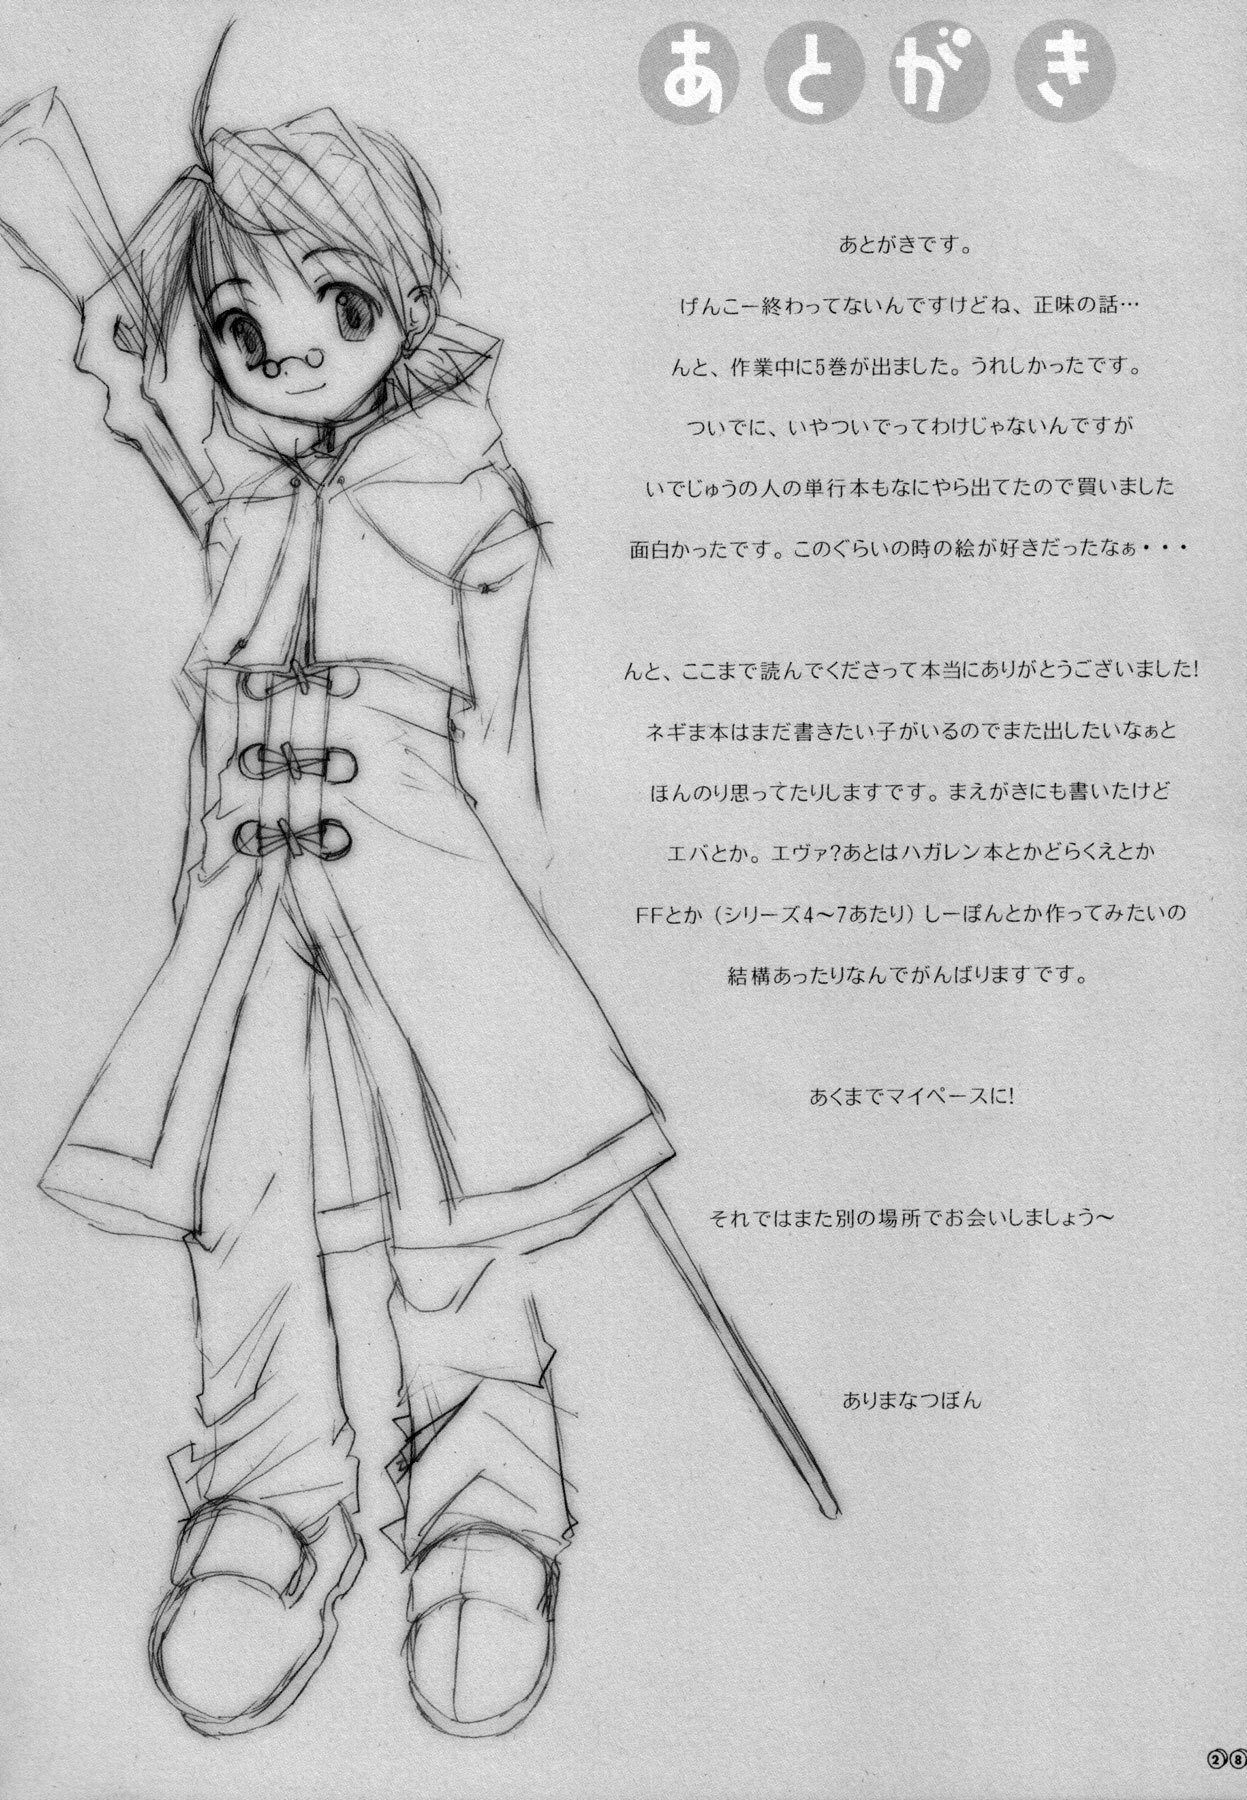 あとがき
あとがきです。
げんこー終わってないんですけどね、正味の話…
んと、作業中に5巻が出ました。うれしかったです。
ついでに、いやついでってわけじゃないんですが
いでじゅうの人の単行本もなにやら出てたので買いました
面白かったです。このぐらいの時の絵が好きだったなぁ・・・
んと、ここまで読んでくださって本当にありがとうございました!
ネギま本はまだ書きたい子がいるのでまた出したいなぁと
ほんのり思ってたりしますです。まえがきにも書いたけど
エバとか。エヴァ?あとはハガレン本とかどらくえとか
FFとか（シリーズ4〜7あたり）しーぽんとか作ってみたいの
結構あったりなんでがんばりますです。
あくまでマイペースに!
それではまた別の場所でお会いしましょう〜
ありまなつぼん
28